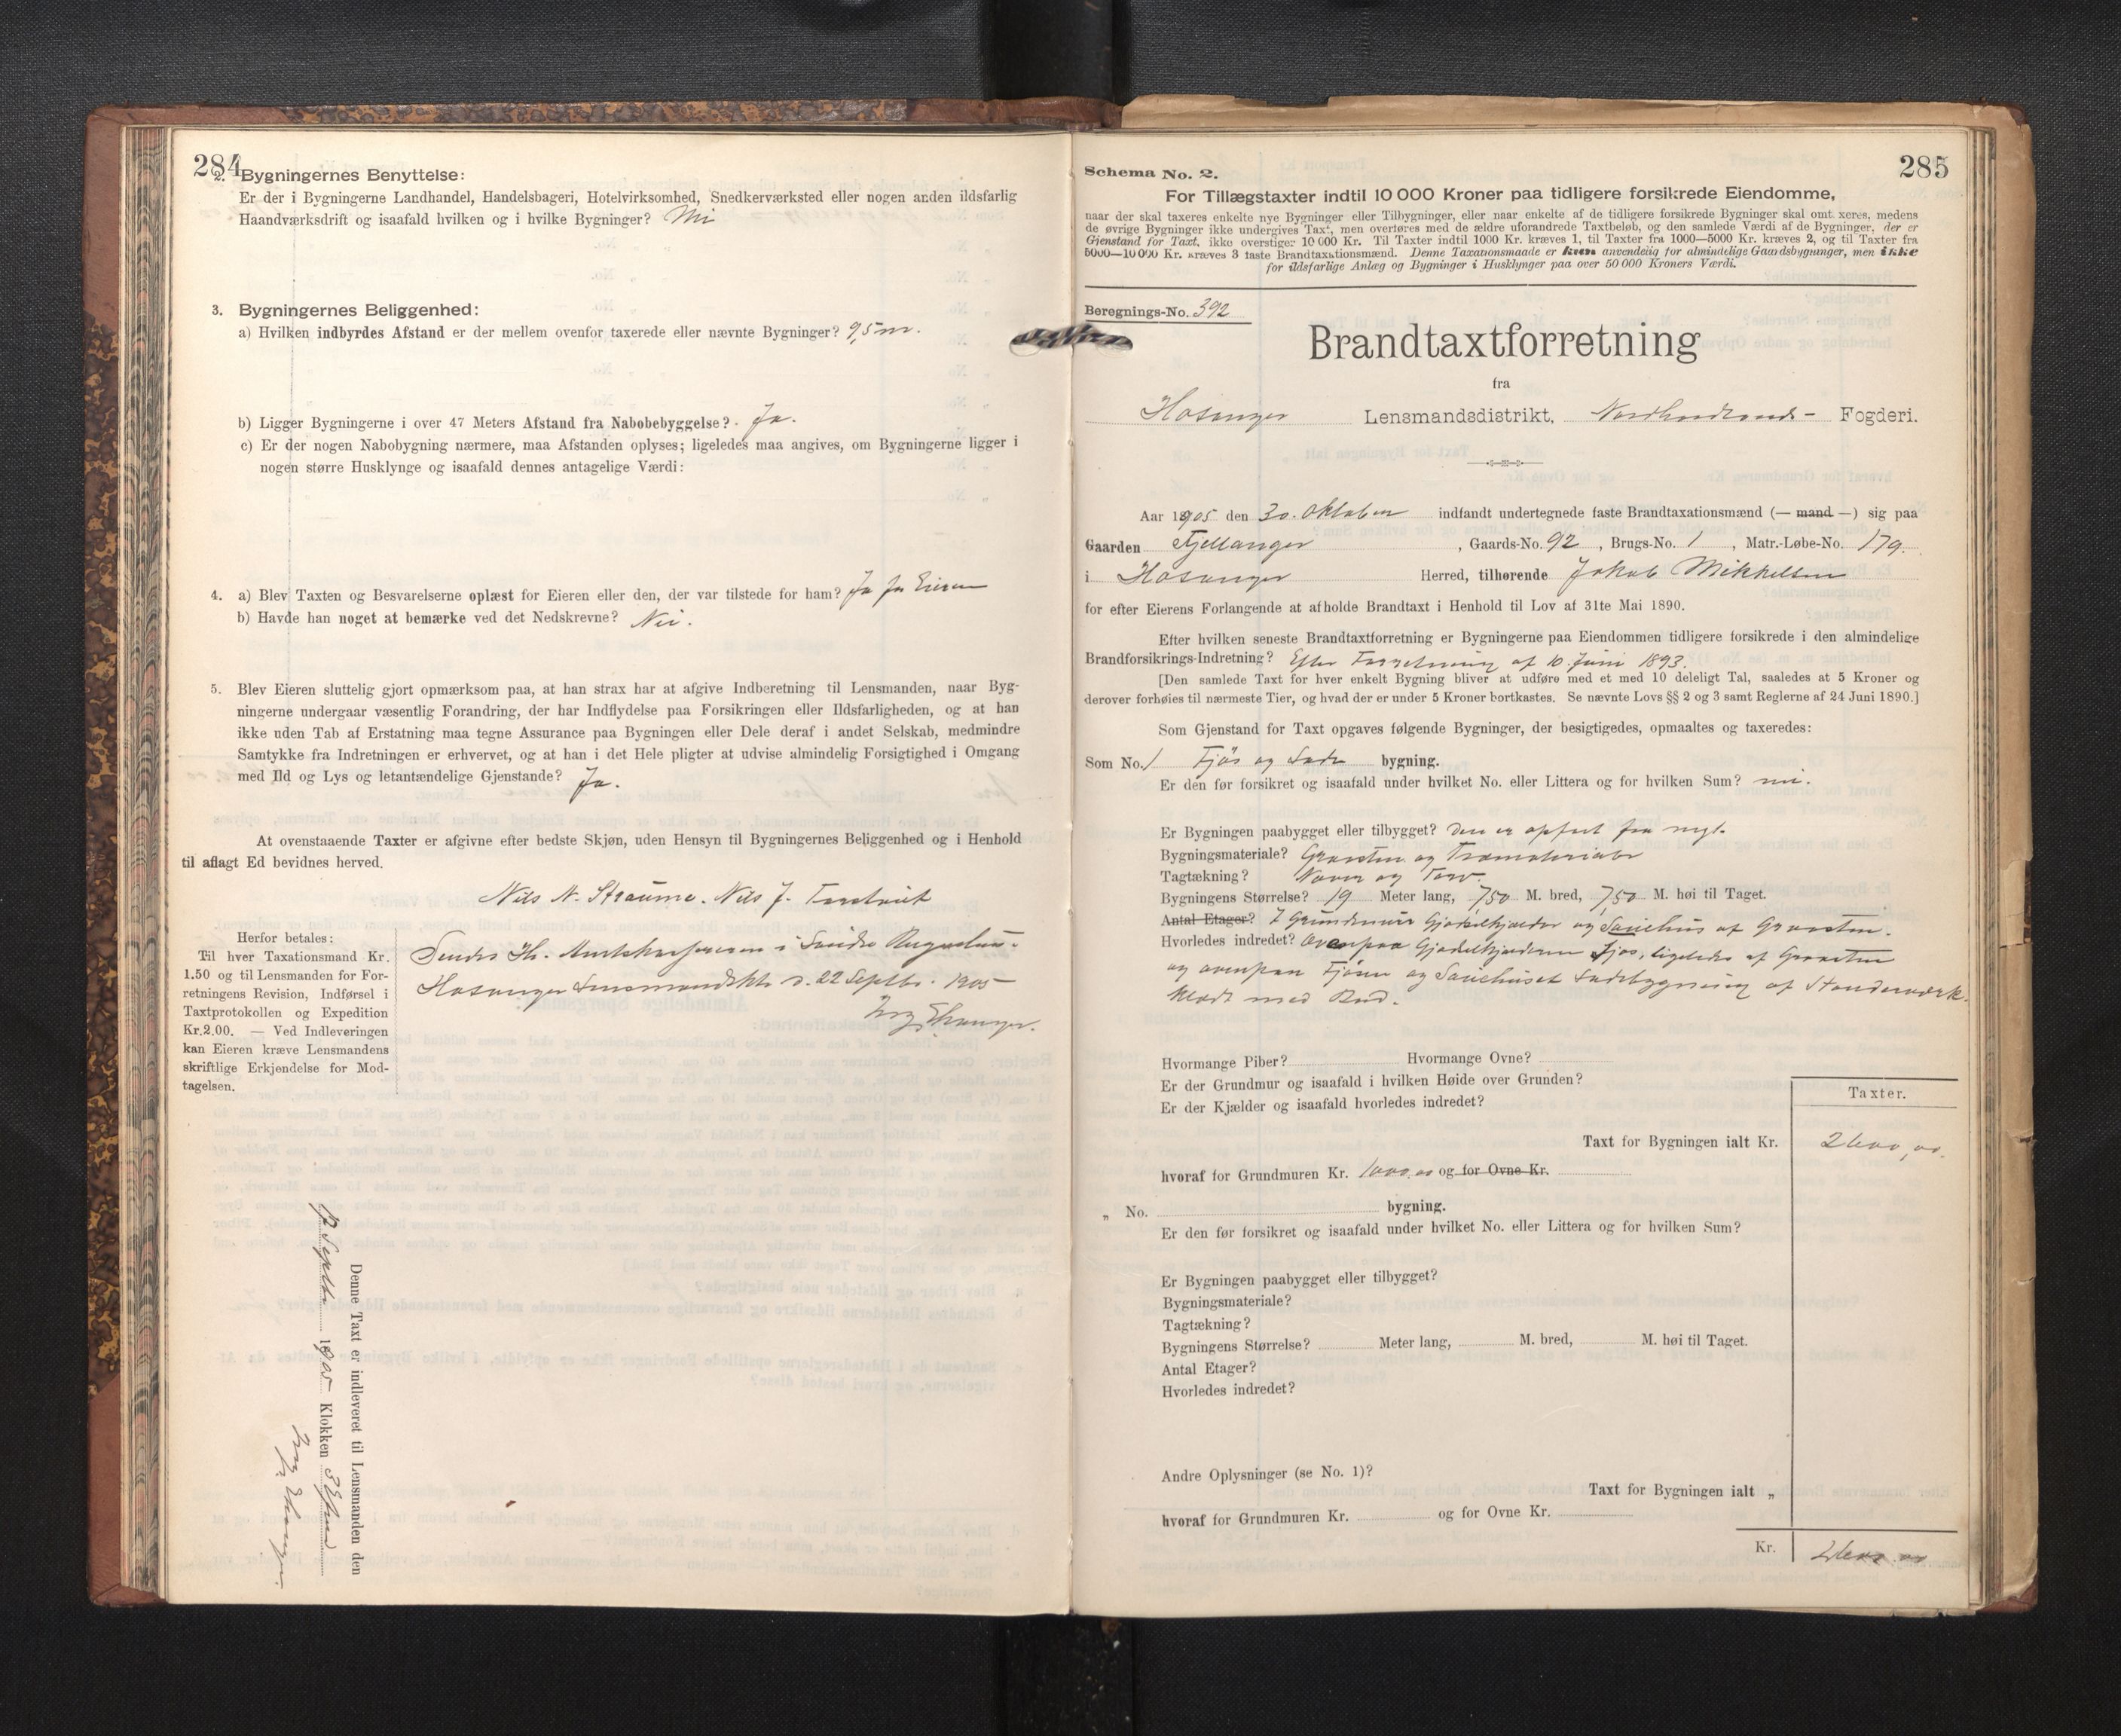 284
2. Bygningernes Benyttelse:
Er der i Bygningerne Landhandel, Handelsbageri, Hotelvirksomhed, Snedkerværksted eller nogen anden ildsfarlig
Haandværksdrift og isaafald hvilken og i hvilke Bygninger? Nei
3. Bygningernes Beliggenhed:
a) Hvilken indbyrdes Afstand er der mellem ovenfor taxerede eller nævnte Bygninger? 9,5 m.
b) Ligger Bygningerne i over 47 Meters Afstand fra Nabobebyggelse? Ja.
c) Er der nogen Nabobygning nærmere, maa Afstanden oplyses; ligeledes maa angives, om Bygningerne ligger i
nogen større Husklynge og isaafald dennes antagelige Værdi:
4. a) Blev Taxten og Besvarelserne oplæst for Eieren eller den, der var tilstede for ham? Ja for Eieren
b) Havde han noget at bemærke ved det Nedskrevne? Nei.
5. Blev Eieren sluttelig gjort opmærksom paa, at han strax har at afgive Indberetning til Lensmanden, naar Byg-
ningerne undergaar væsentlig Forandring, der har Indflydelse paa Forsikringen eller Ildsfarligheden, og at han
ikke uden Tab af Erstatning maa tegne Assurance paa Bygningen eller Dele deraf i andet Selskab, medmindre
Samtykke fra Indretningen er erhvervet, og at han i det Hele pligter at udvise almindelig Forsigtighed i Omgang
med Ild og Lys og letantændelige Gjenstande? Ja.
At ovenstaaende Taxter er afgivne efter bedste Skjøn, uden Hensyn til Bygningernes Beliggenhed og i Henhold
til aflagt Ed bevidnes herved.
Nils N. Straume. Nils J.
Herfor betales:
Til hver Taxationsmand Kr.
1.50 og til Lensmanden for For-
retningens Revision, Indførsel i
Taxtprotokollen og Expedition
Kr.2.00. — Ved Indleveringen
kan Eieren kræve Lensmandens
skriftlige Erkjendelse for Mod-
tagelsen.
Sendes Hr. Amtskassereren i Søndre
Hosanger Lensmandsktr. d. 22 Septbr. 1905
Denne Taxt er indleveret til Lensmanden den
Septbr. 1905 Klokken 3 Efterm
285
Schema No. 2.
For Tillægstaxter indtil 10 000 Kroner paa tidligere forsikrede Eiendomme,
naar der skal taxeres enkelte nye Bygninger eller Tilbygninger, eller naar enkelte af de tidligere forsikrede Bygninger skal omtaxeres, medens
de øvrige Bygninger ikke undergives Taxt, men overføres med de ældre uforandrede Taxtbeløb, og den samlede Værdi af de Bygninger, der er
Gjenstand for Taxt, ikke overstiger 10 000 Kr. Til Taxter indtil 1000 Kr. kræves 1, til Taxter fra 1000—5000 Kr. kræves 2, og til Taxter fra
5000—10 000 Kr. kræves 3 faste Brandtaxationsmænd. Denne Taxationsmaade er kun anvendelig for almindelige Gaardsbygninger, men ikke
for ildsfarlige Anlæg og Bygninger i Husklynger paa over 50 000 Kroners Værdi.
Beregnings-No. 392
Brandtaxtforretning
fra
Hosanger Lensmandsdistrikt, Nordhordlands Fogderi.
Aar 1905 den 30. Oktober indfandt undertegnede faste Brandtaxationsmænd (— mand —) sig paa
Gaarden Fjellanger, Gaards-No. 92, Brugs-No. 1, Matr.-Løbe-No. 179.
i Hosanger Herred, tilhørende Jakob Mikkelsen
for efter Eierens Forlangende at afholde Brandtaxt i Henhold til Lov af 31te Mai 1890.
Efter hvilken seneste Brandtaxtforretning er Bygningerne paa Eiendommen tidligere forsikrede i den almindelige
Brandforsikrings-Indretning? Efter Forretning af 10. Juni 1893.
[Den samlede Taxt for hver enkelt Bygning bliver at udføre med et med 10 deleligt Tal, saaledes at 5 Kroner og
derover forhøies til nærmeste Tier, og hvad der er under 5 Kroner bortkastes. Se nævnte Lovs §§ 2 og 3 samt Reglerne af 24 Juni 1890.]
Som Gjenstand for Taxt opgaves følgende Bygninger, der besigtigedes, opmaaltes og taxeredes:
Som No. 1 Fjøs og Lade bygning.
Er den før forsikret og isaafald under hvilket No. eller Littera og for hvilken Sum? nei.
Er Bygningen paabygget eller tilbygget? den er opført fra nyt.
Bygningsmateriale? Graasten og Træmaterialer
Tagtækning? Næver og Torv.
Bygningens Størrelse? 19 Meter lang, 7,50 M. bred, 7,50 M. høi til Taget.
Antal Etager? I Grundmuur Gjødselkjælder og Sauehus af Graasten.
Hvorledes indredet? Ovenpaa Gjødselkjælderen Fjøs, ligeledes af Graasten
og ovenpaa Fjøsen og Sauehuset Ladebygning af Standerværk.
Klædt med Bord.
Hvormange Piber? Hvormange Ovne?
Er der Grundmur og isaafald i hvilken Høide over Grunden?
Er der Kjælder og isaafald hvorledes indredet?
Taxter.
Taxt for Bygningen ialt Kr. 2600,00.
hvoraf for Grundmuren Kr. 1000,00 og for Ovne Kr.
„ No. bygning.
Er den før forsikret og isaafald under hvilket No. eller Littera og for hvilken Sum?
Er Bygningen paabygget eller tilbygget?
Bygningsmateriale?
Tagtækning?
Bygningens Størrelse? Meter lang, M. bred, M. høi til Taget.
Antal Etager?
Hvorledes indredet?
Andre Oplysninger (se No. 1)?
Taxt for Bygningen ialt „
hvoraf for Grundmuren Kr. og for Ovne Kr.
Kr. 2600.00